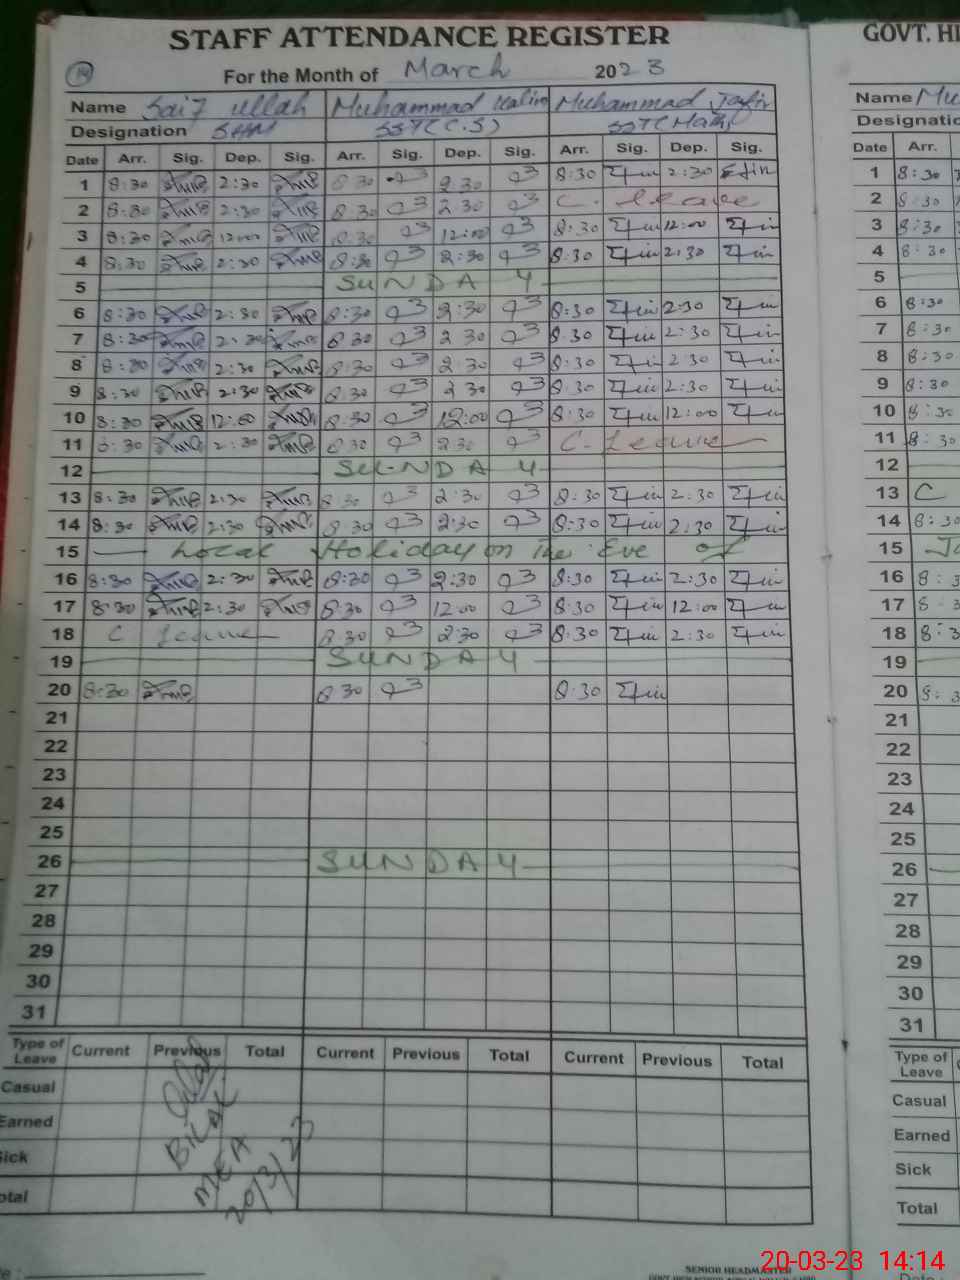 STAFF ATTENDANCE REGISTER
GOVT. HI
19 For the Month of March 2023
Name Saif ullah Muhammad Muhammad Jafir
Designation SHM SST(C.S) SST(Math)
Date Arr. Sig. Dep. Sig. Arr. Sig. Dep. Sig. Arr. Sig. Dep. Sig.
1 8:30 2:30 8:30 2:30 8:30 2:30
2 8:30 2:30 8:30 2:30 C. leave
3 8:30 12:00 8:30 12:00 8:30 12:00
4 8:30 2:30 8:30 2:30 8:30 2:30
5 SUNDAY
6 8:30 2:30 8:30 2:30 8:30 2:30
7 8:30 2:30 8:30 2 30 8:30 2:30
8 8:30 2:30 8:30 2:30 8:30 2:30
9 8:30 2:30 8:30 2 30 8:30 2:30
10 8:30 12:00 8:30 12:00 8:30 12:00
11 8:30 2:30 8:30 2:30 C. Leave
12 SUNDAY
13 8:30 2:30 8:30 2:30 8:30 2:30
14 8:30 2:30 8:30 2:30 8:30 2:30
15 Local Holiday on The Eve of
16 8:30 2:30 8:30 2:30 8:30 2:30
17 8:30 2:30 8:30 12:00 8:30 12:00
18 C leave 8:30 2:30 8:30 2:30
19 SUNDAY
20 8:30 8:30 8:30
21
22
23
24
25
26 SUNDAY
27
28
29
30
31
Type of Leave Current Previous Total Current Previous Total Current Previous Total
Casual
Earned
Sick
Total
BILAL
MEA
20/3/23
SENIOR HEADMASTER
Name Mu
Designatio
Date Arr.
1 8:30
2 8:30
3 8:30
4 8:30
5
6 8:30
7 8:30
8 8:30
9 8:30
10 8:30
11 8:30
12
13 C
14 8:30
15
16 8:3
17 8:3
18 8:3
19
20 8:3
21
22
23
24
25
26
27
28
29
30
31
Type of Leave
Casual
Earned
Sick
Total
20-03-23 14:14